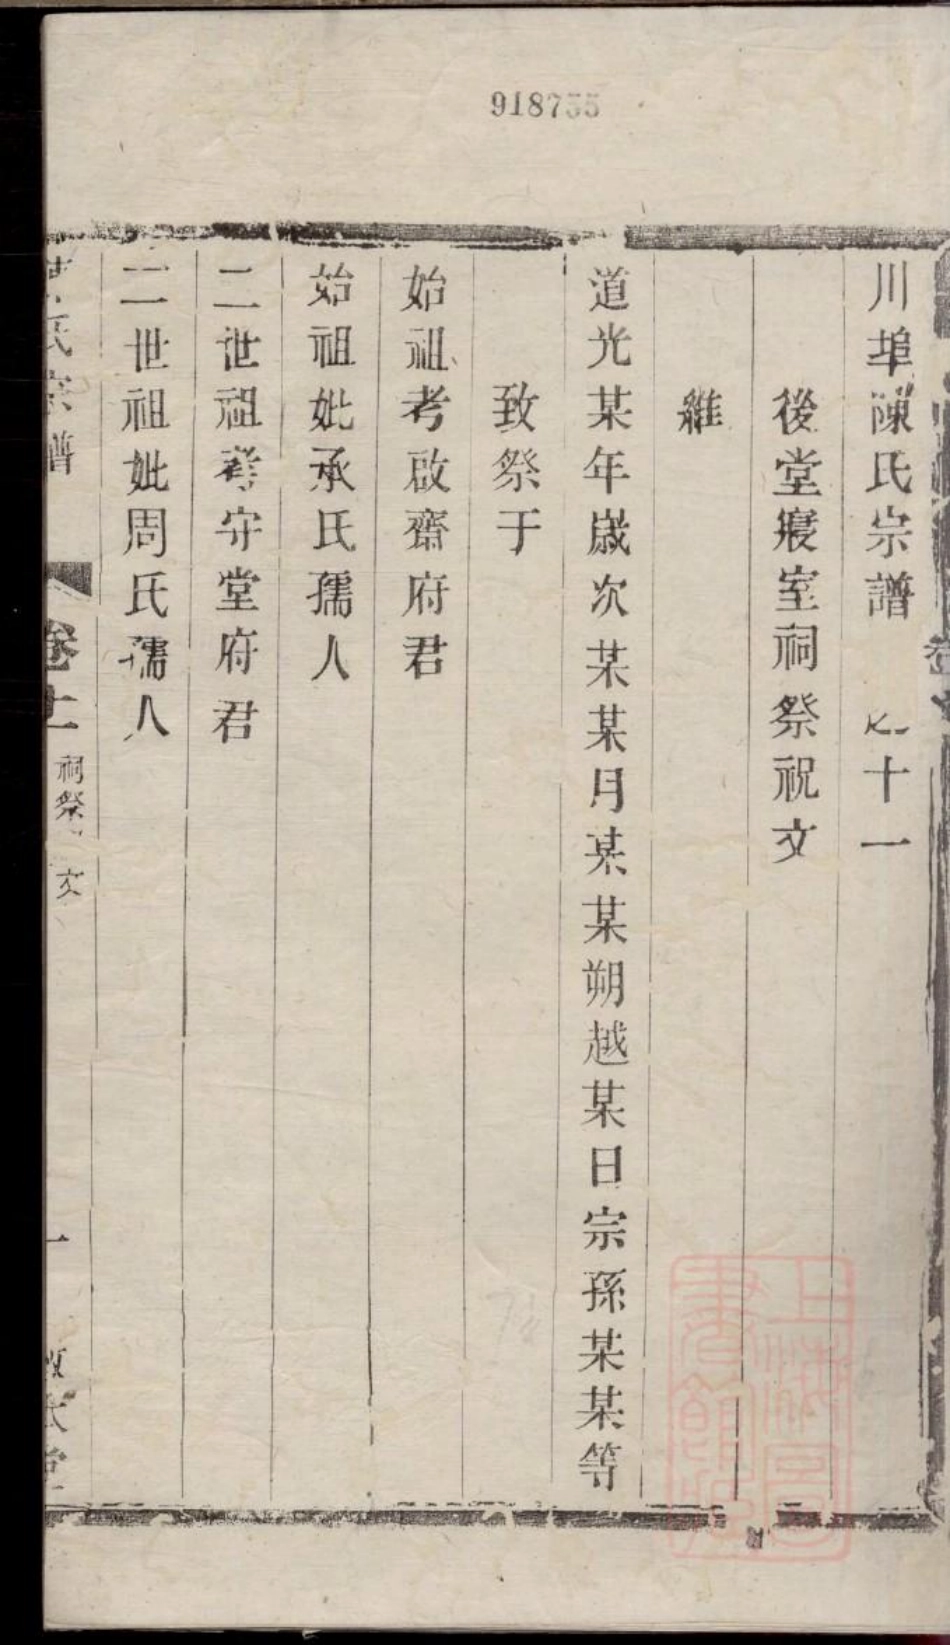 918735
川埠陳氏宗譜 卷十一
後堂寢室祠祭祝文
維
道光某年歲次某某月某某朔越某日宗孫某某等
致祭于
始祖考啟齋府君
始祖妣承氏孺人
二世祖考守堂府君
二世祖妣周氏孺人
氏宗譜 卷十一 祠祭 文 一
上海圖書館藏